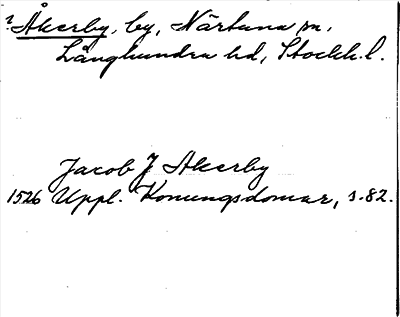 ? Åkerby, by, Närtuna sn,
Långhundra hd, Stockh. l.
Jacob J Akerby
1526 Uppl. Konungsdomar, s. 82.